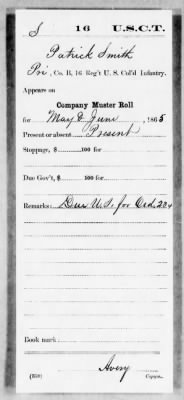 S 16 U.S.C.T.
Patrick Smith
Pvt, Co. B, 16 Reg't U. S. Col'd Infantry.
Appears on
Company Muster Roll
for May & June, 1865
Present or absent Present
Stoppage, $ 100 for
Due Gov't, $ 100 for
Remarks: Due U.S. for Ord. 
Book mark:
Avery
(358) Copyist.